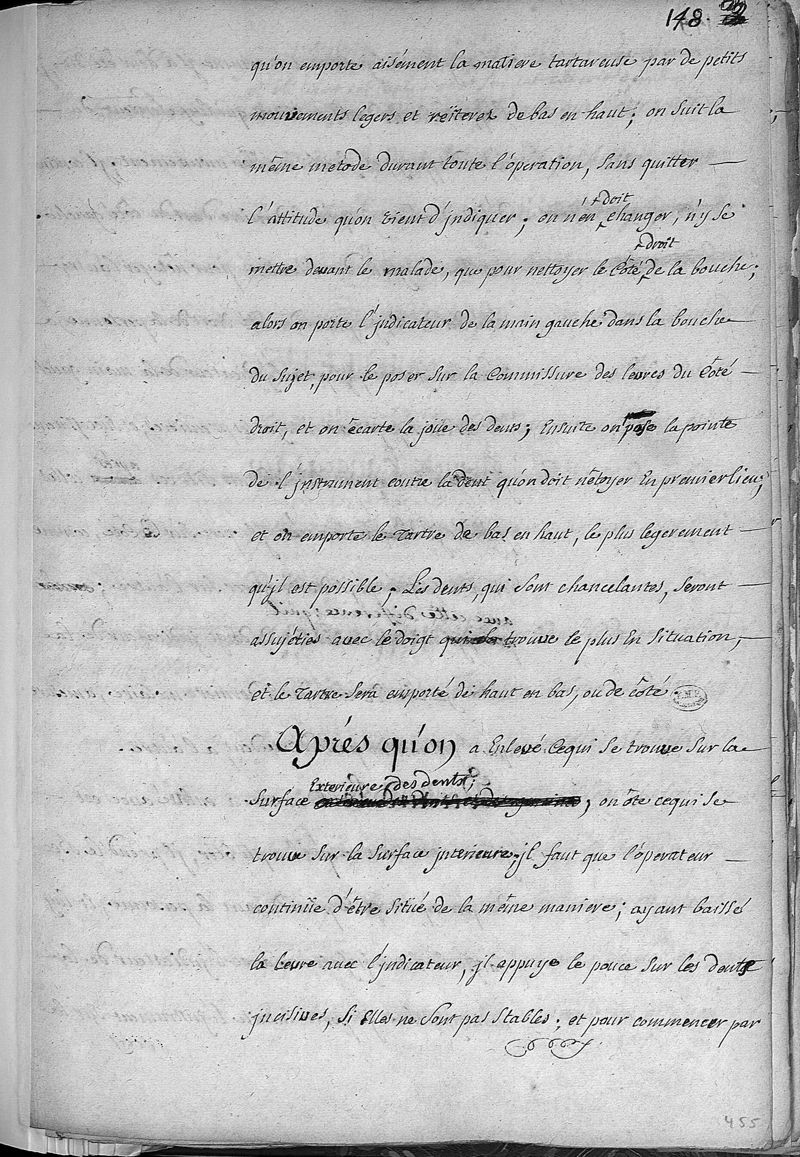 148.
qu'on emporte aisément la matiere tartareuse par de petits
mouvements legers et reïterez de bas en haut; on suit la
même metode durant toute l'operation, sans quitter
l'attitude qu'on vient d'jndiquer; on n'en doit changer, n'y se
mettre devant le malade, que pour nettoyer le Côté droit de la bouche;
alors on porte l'jndicateur de la main gauche dans la bouche
du Sujet, pour le poser sur la Commissure des levres du Côté
droit, et on écarte la joüe des dents; Ensuite on pose la pointe
de l'jnstrument contre la dent qu'on doit nétoyer En premier lieu;
et on emporte le Tartre de bas en haut, le plus legerement
qu'jl est possible; Les dents, qui sont chancelantes, seront
avec cette difference qu'il
assujéties avec le doigt qui se trouve le plus En situation,
et le Tartre sera emporté de haut en bas, ou de côté.
Aprés qu'on a Enlevé Ce qui se trouve sur la
Exterieure des dents;
Surface, on ôte ce qui se
trouve sur la Surface jnterieure; jl faut que l'operateur
continüe d'être situé de la même maniere; ayant baissé
la levre avec l'jndicateur, jl appuye le pouce sur les dents
jncisives, si elles ne sont pas stables; et pour commencer par
455